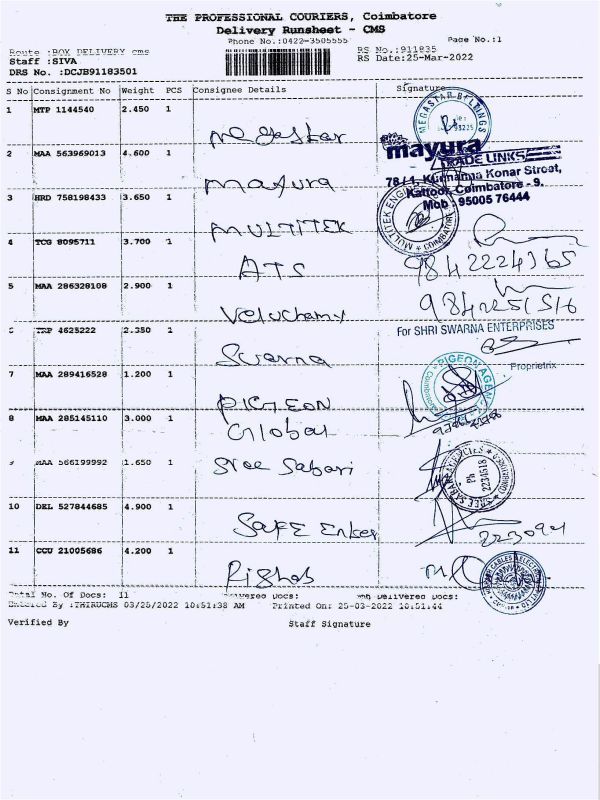 THE PROFESSIONAL COURIERS, Coimbatore
Delivery Runsheet - CMS
Phone No.:0422-3505555
Page No.:1
Route :BOX DELIVERY cms
RS No.:911835
Staff :SIVA
RS Date:25-Mar-2022
DRS No. :DCJB91183501
S No Consignment No Weight PCS Consignee Details Signature
1 MTP 1144540 2.450 1
Megastar
MEGASTAR
2 MAA 563969013 4.600 1
mayura
TRADE LINKS
78 / Kunnanna Konar Street,
Kattoor, Coimbatore - 9.
Mob : 95005 76444
Mayura
3 HRD 758198433 3.650 1
MULTITEK
MULTITEK COIMBATORE
4 TCG 8095711 3.700 1
ATS
9842224365
5 MAA 286328108 2.900 1
Veluchamy
9842251516
TRP 4625222 2.350 1
For SHRI SWARNA ENTERPRISES
Proprietrix
Swarna
7 MAA 289416528 1.200 1
PIGEON
PIGEON
8 MAA 285145110 3.000 1
Global
9 MAA 566199992 1.650 1
Sree Sabari
SREE SABARI AGENCIES
Ph
2234518
10 DEL 527844685 4.900 1
Safe
11 CCU 21005686 4.200 1
Rishab
Total No. Of Docs: 11 Delivered Docs: Delivered Docs:
Entered By :THIRUCMS 03/25/2022 10:51:38 AM Printed On: 25-03-2022 10:51:44
Verified By Staff Signature